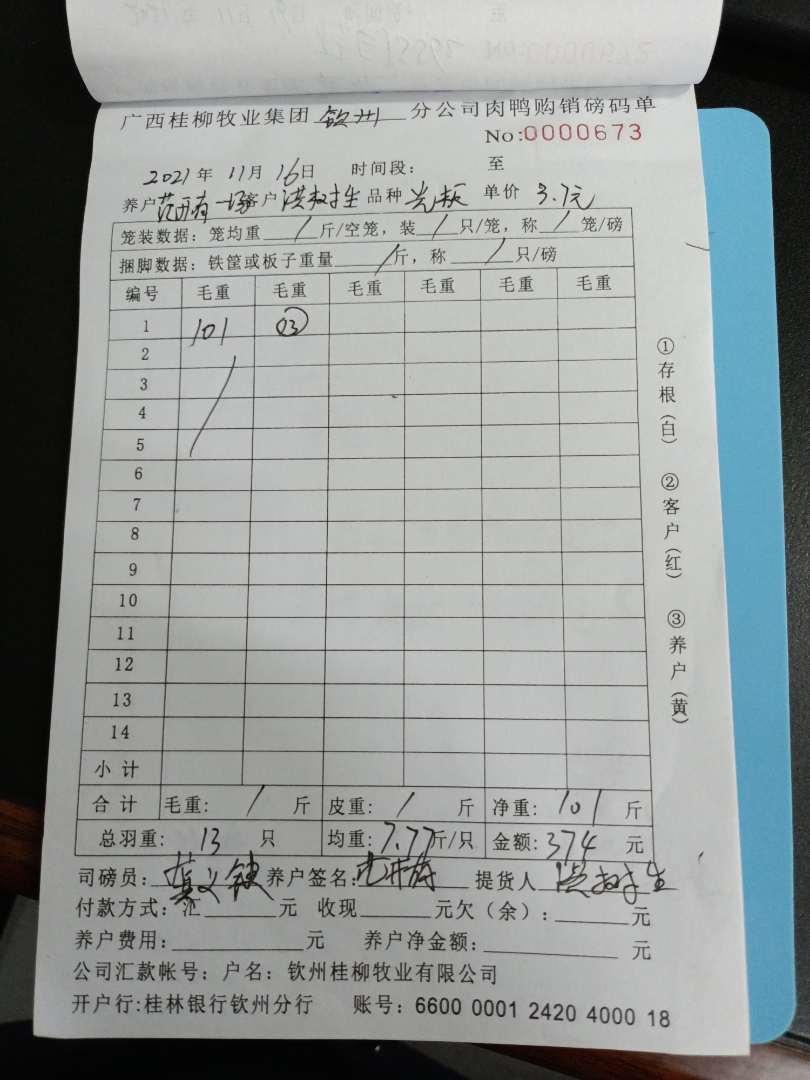 广西桂柳牧业集团 钦州 分公司肉鸭购销磅码单
No:0000673
2021年 11月 16日 时间段： 至
养户 一场客户 洪树生 品种 光板 单价 3.7元
笼装数据：笼均重 / 斤/空笼，装 / 只/笼，称 / 笼/磅
捆脚数据：铁筐或板子重量 / 斤，称 / 只/磅
编号 毛重 毛重 毛重 毛重 毛重 毛重
1 101 ⑬
2
3
4
5
6
7
8
9
10
11
12
13
14
小计
合计 毛重： / 斤 皮重： / 斤 净重：101 斤
总羽重： 13 只 均重：7.77斤/只 金额：374 元
司磅员： 养户签名： 提货人 洪树生
付款方式：汇 元 收现 元欠（余）： 元
养户费用： 元 养户净金额： 元
公司汇款帐号：户名：钦州桂柳牧业有限公司
开户行:桂林银行钦州分行 账号：6600 0001 2420 4000 18
①存根(白) ②客户(红) ③养户(黄)